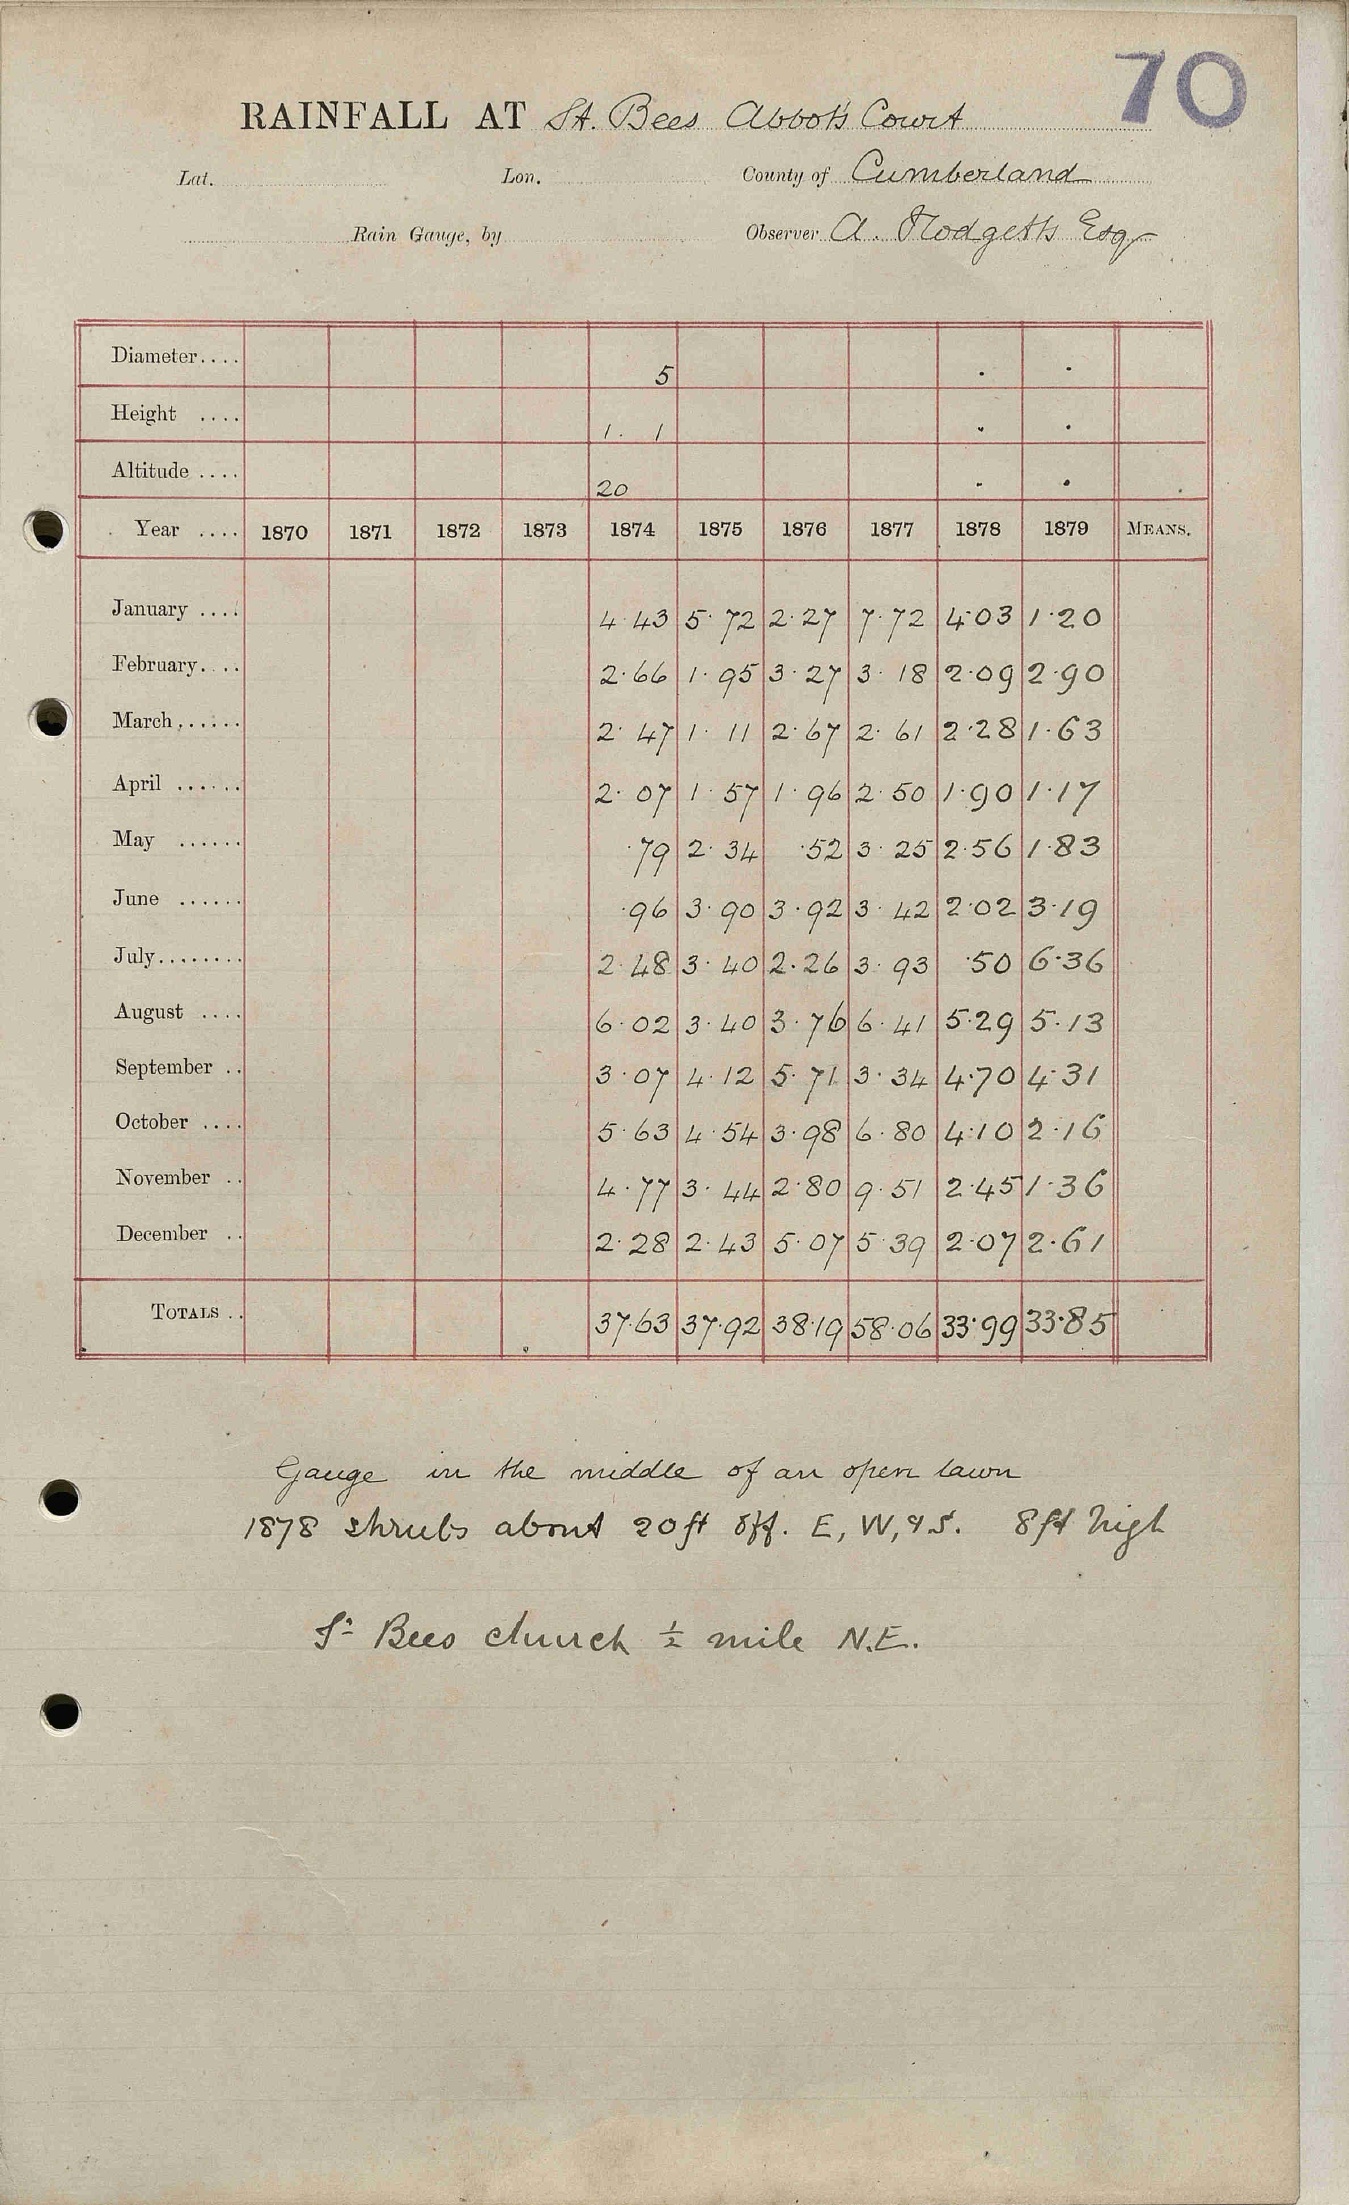 70
RAINFALL AT St. Bees Abbot's Court
Lat. Lon. County of Cumberland
Rain Gauge, by Observer A. Hodgetts Esq
Diameter.... 5 . .
Height .... 1. 1 . .
Altitude .... 20 . .
Year .... 1870 1871 1872 1873 1874 1875 1876 1877 1878 1879 MEANS.
January .... 4.43 5.72 2.27 7.72 4.03 1.20
February.... 2.66 1.95 3.27 3.18 2.09 2.90
March...... 2.47 1.11 2.67 2.61 2.28 1.63
April ...... 2.07 1.57 1.96 2.50 1.90 1.17
May ...... .79 2.34 .52 3.25 2.56 1.83
June ...... .96 3.90 3.92 3.42 2.02 3.19
July........ 2.48 3.40 2.26 3.93 .50 6.36
August .... 6.02 3.40 3.76 6.41 5.29 5.13
September .. 3.07 4.12 5.71 3.34 4.70 4.31
October .... 5.63 4.54 3.98 6.80 4.10 2.16
November .. 4.77 3.44 2.80 9.51 2.45 1.36
December .. 2.28 2.43 5.07 5.39 2.07 2.61
TOTALS .. 37.63 37.92 38.19 58.06 33.99 33.85
Gauge in the middle of an open lawn
1878 shrubs about 20ft off. E, W, & S. 8ft high
St Bees church ½ mile N.E.